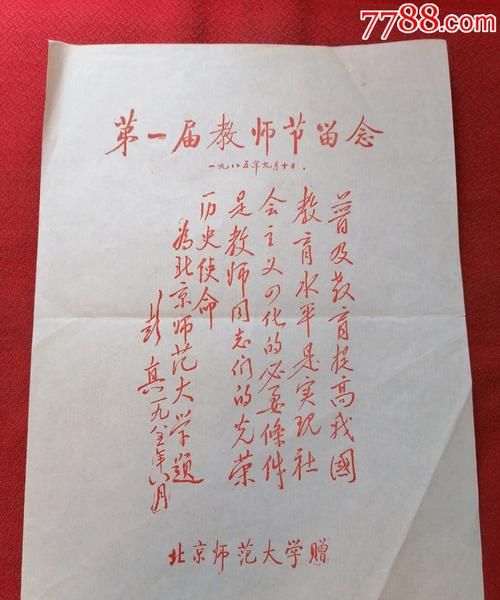 7788.com
第一届教师节留念
一九八五年九月十日.
普及教育提高我國
教育水平是实现社
会主义四化的必要條件
是教师同志们的光荣
历史使命
为北京师范大学题
彭真一九八五年八月
北京师范大学赠